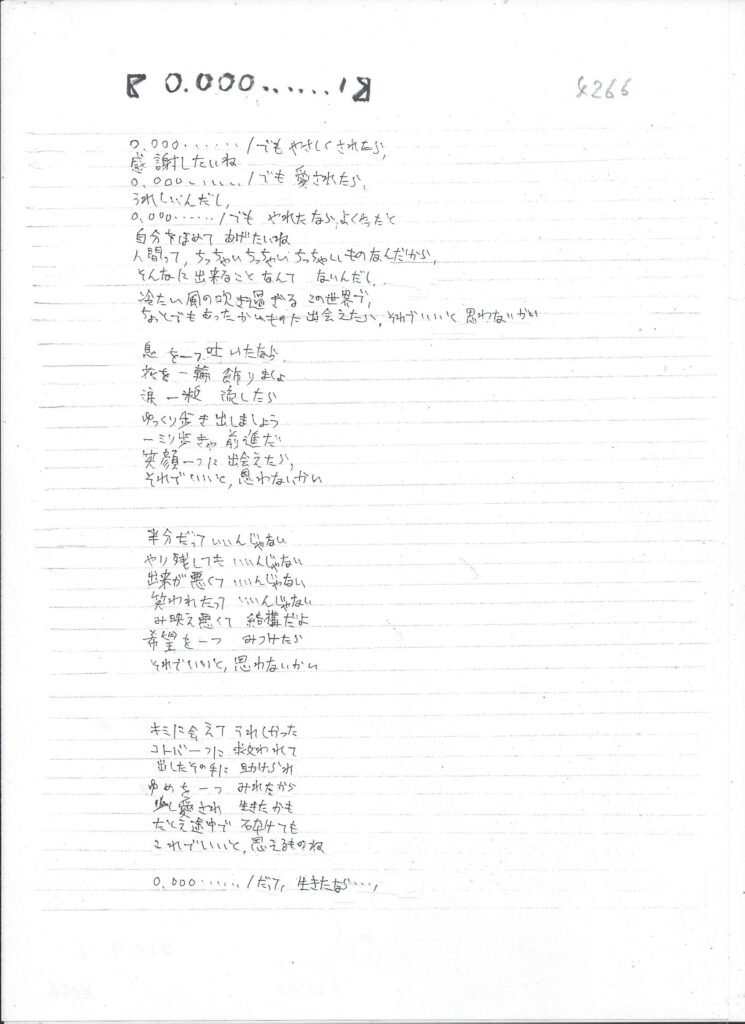 『 0.000......1 』
4266
0.000......1でも やさしくされたら,
感謝したいね
0.000......1でも 愛されたら,
うれしいんだし,
0.000......1でも やれたなら,よくやったと
自分をほめて あげたいね
人間って, ちっちゃい ちっちゃい ちっちゃいものなんだから,
そんなに 出来ること なんて ないんだし,
冷たい風の吹き過ぎる この世界で,
ちょっとでも あったかいものに 出会えたら, それでいいと 思わないかい
息 を一つ 吐いたなら
花を 一輪 飾りましょ
涙 一粒 流したら
ゆっくり歩き出しましょう
一ミリ歩きゃ 前進だ
笑顔一つに 出会えたら,
それでいいと, 思わないかい
半分だって いいんじゃない
やり残しても いいんじゃない
出来が悪くて いいんじゃない
笑われたって いいんじゃない
み映え悪くて 結構だよ
希望を一つ みつけたら
それでいいと, 思わないかい
キミに会えて うれしかった
コトバ一つに 救われて
出したその手に 助けられ
ゆめを一つ みれたから
少し愛され 生きたかも
たとえ途中で 砕けても
これでいいと, 思えるものね
0.000......1だって, 生きたなら...,